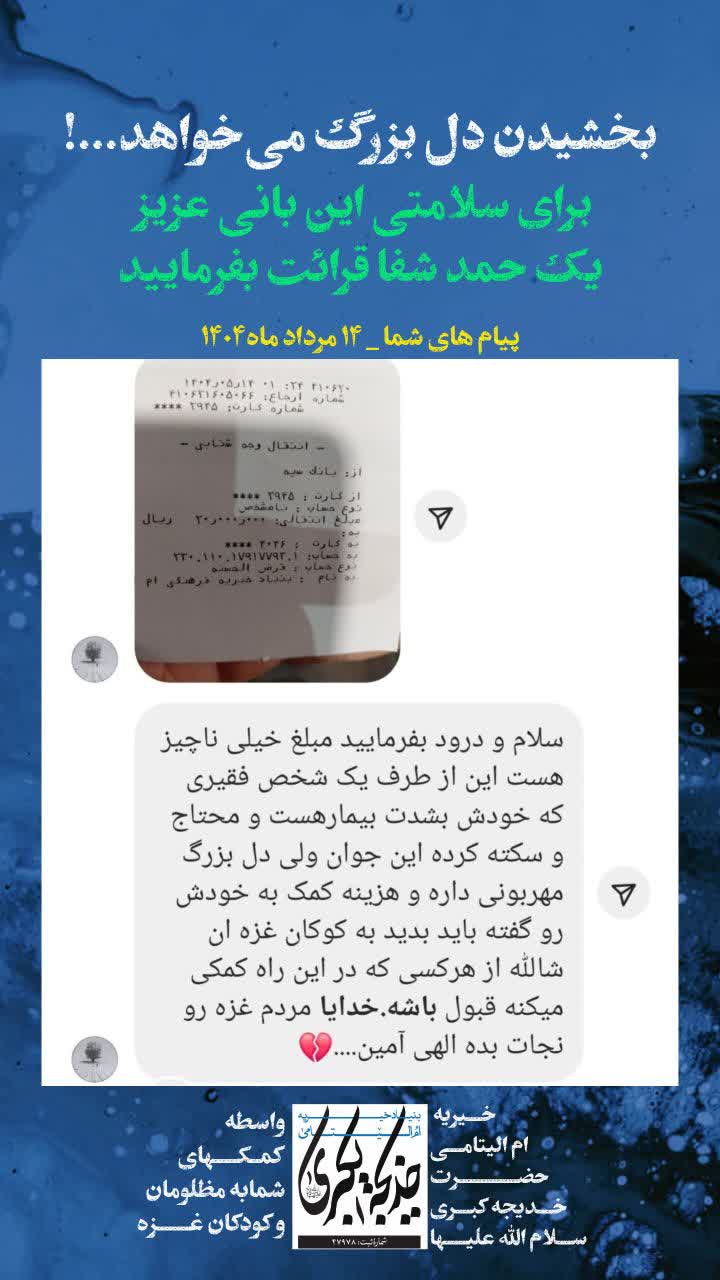 بخشیدن دل بزرگ می‌خواهد....!
برای سلامتی این بانی عزیز
یک حمد شفا قرائت بفرمایید
پیام های شما _ ۱۴ مرداد ماه ۱۴۰۴
۴۱۰۶۲۰ ۲۴: ۰۱ ۱۴ر۰۵ر۱۴۰۴
شماره ارجاع: ۴۱۰۶۲۱۶۰۵۰۶۶
شماره کارت: ۲۹۴۵ ****
- انتقال وجه شتابی -
از: بانک سپه
از کارت : ۲۹۴۵ ****
نوع حساب : نامشخص
مبلغ انتقالی: ۲۰٫۰۰۰٫۰۰۰ ریال
به:
به کارت : ۴۰۴۶ ****
به حساب: ۲۳۰.۱۱۰.۱۷۹۱۷۷۹۳.۱
نوع حساب : قرض الحسنه
به نام : بنیاد خیریه فرهنگی ام
سلام و درود بفرمایید مبلغ خیلی ناچیز
هست این از طرف یک شخص فقیری
که خودش بشدت بیمارهست و محتاج
و سکته کرده این جوان ولی دل بزرگ
مهربونی داره و هزینه کمک به خودش
رو گفته باید بدید به کوکان غزه ان
شالله از هرکسی که در این راه کمکی
میکنه قبول باشه.خدایا مردم غزه رو
نجات بده الهی آمین....💔
خیریه
ام الیتامی
حضرت
خدیجه کبری
سلام الله علیها
بنیاد خیریه
ام الیتامی
خدیجة الکبری
شماره ثبت: ۲۷۹۷۸
واسطه
کمکهای
شما به مظلومان
و کودکان غزه